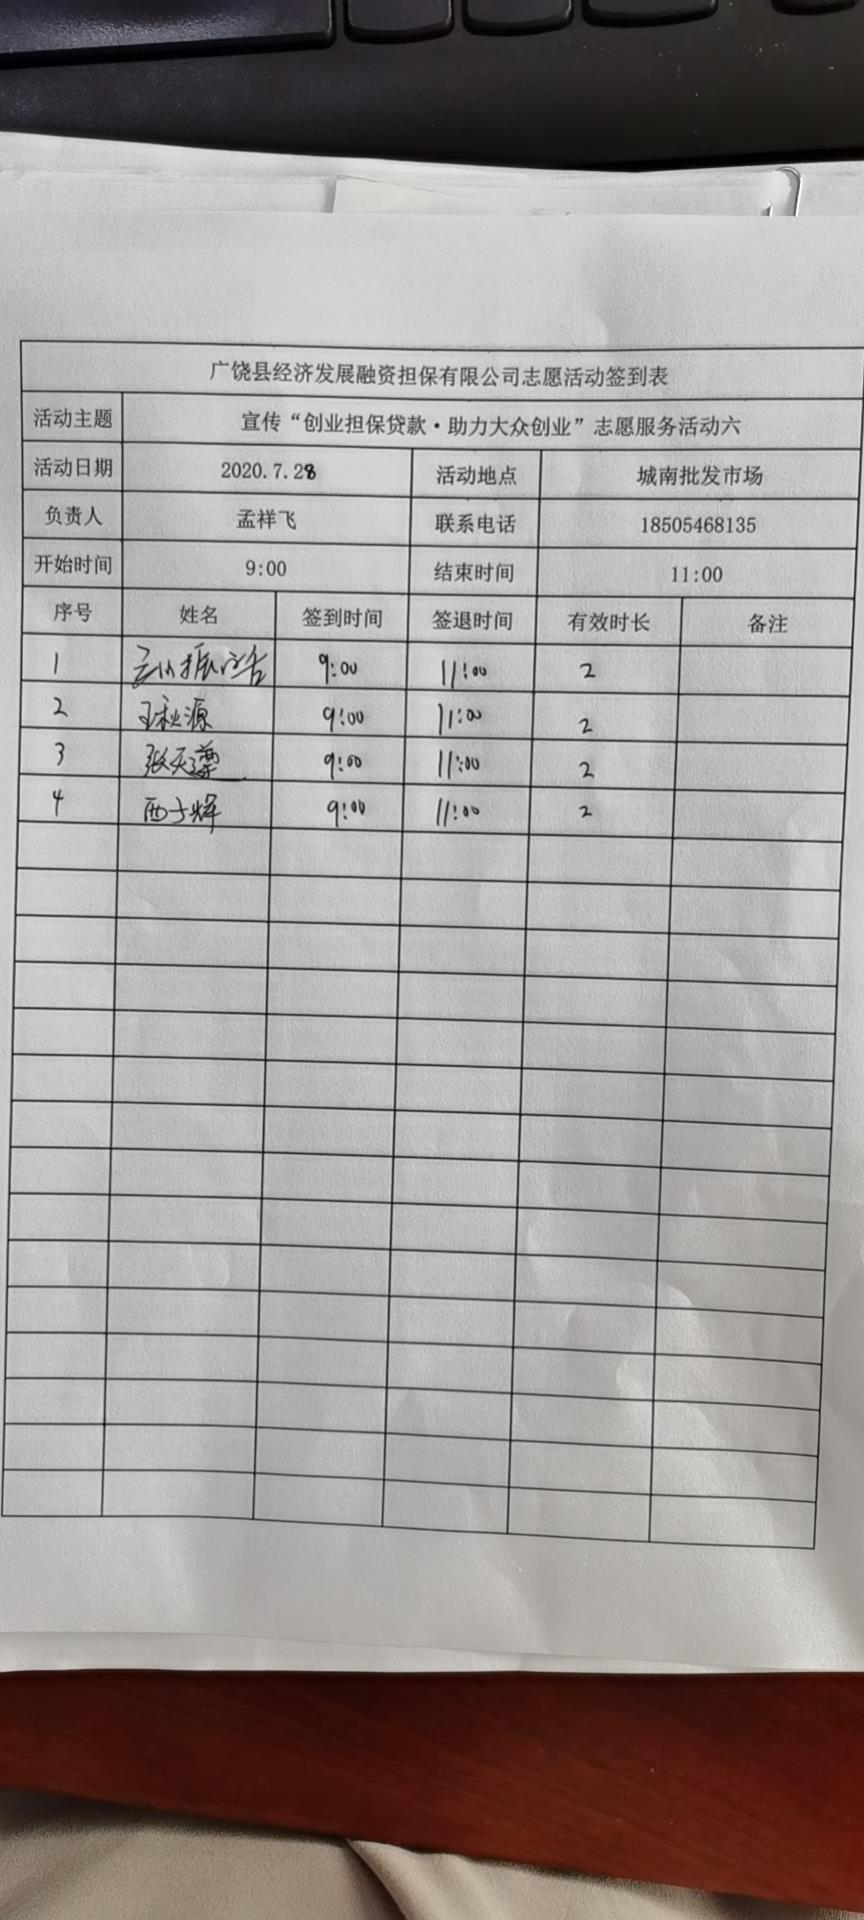 广饶县经济发展融资担保有限公司志愿活动签到表
活动主题 宣传“创业担保贷款·助力大众创业”志愿服务活动六
活动日期 2020.7.28 活动地点 城南批发市场
负责人 孟祥飞 联系电话 18505468135
开始时间 9:00 结束时间 11:00
序号 姓名 签到时间 签退时间 有效时长 备注
1 9:00 11:00 2
2 王秋源 9:00 11:00 2
3 9:00 11:00 2
4 9:00 11:00 2